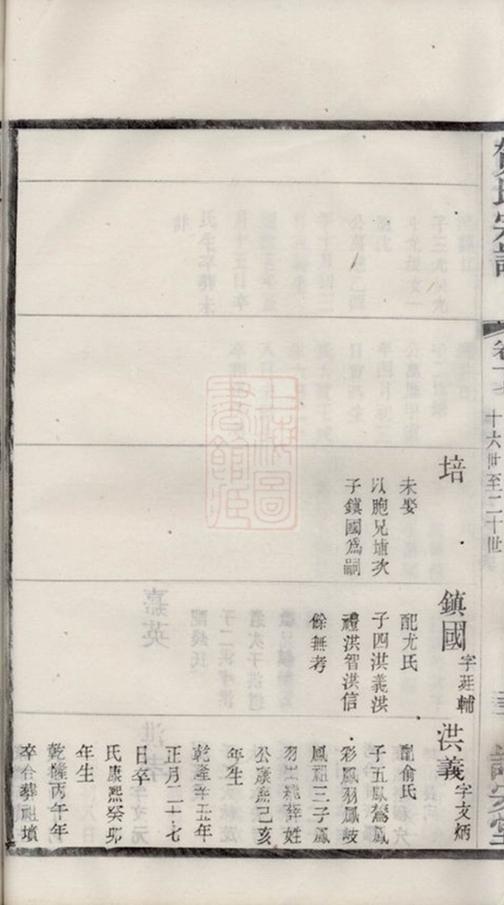 十六世至二十世
培
未娶
以胞兄埴次
子鎮國爲嗣
鎮國
字廷輔
配尤氏
子四洪義洪
禮洪智洪信
餘無考
洪義
字文炳
配俞氏
子五鳳鸞鳳
彩鳳羽鳳岐
鳳祖三子鳳
羽出繼薛姓
公康熙己亥
年生
乾隆辛五年
正月二十七
日卒
氏康熙癸卯
年生
乾隆丙午年
卒合葬祖墳
上海圖
書館藏